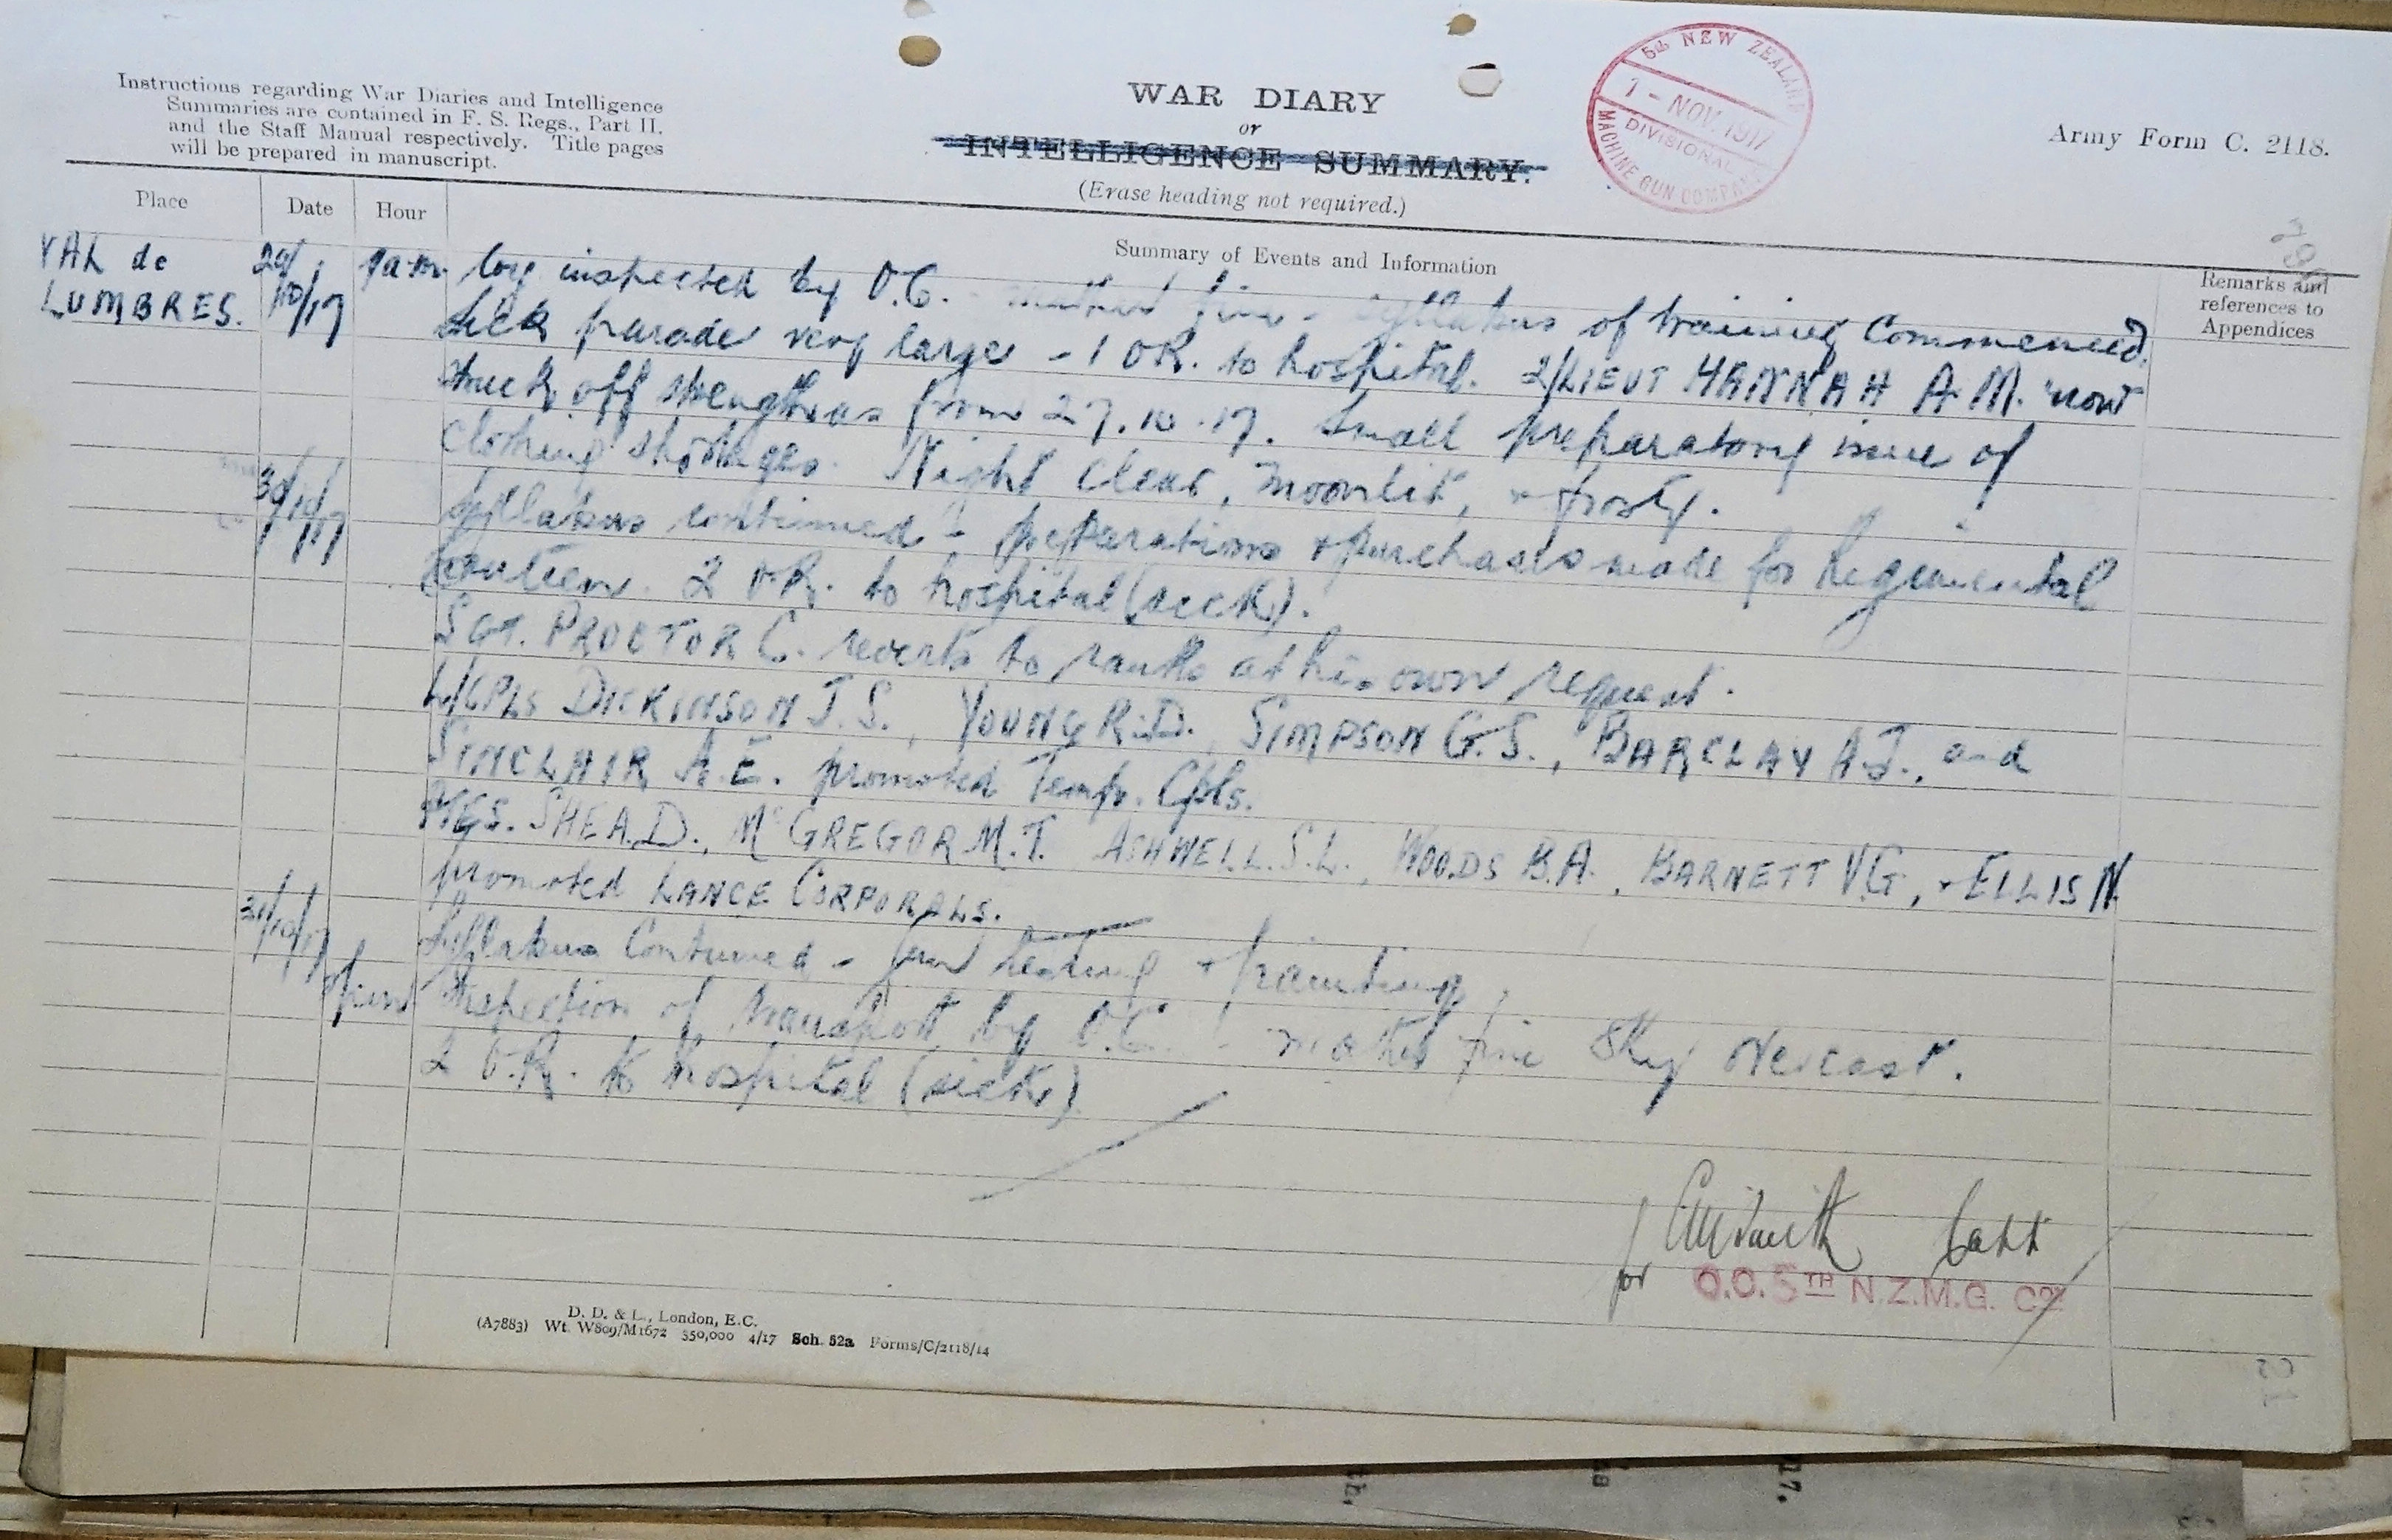 Instructions regarding War Diaries and Intelligence
Summaries are contained in F. S. Regs., Part II.
and the Staff Manual respectively. Title pages
will be prepared in manuscript.
WAR DIARY
or
INTELLIGENCE SUMMARY.
(Erase heading not required.)
5th NEW ZEALAND
1 - NOV. 1917
DIVISIONAL
MACHINE GUN COMPANY
Army Form C. 2118.
Place Date Hour
Summary of Events and Information
Remarks and
references to
Appendices
VAL de
LUMBRES.
29/
10/17
9a.m. Coy inspected by O.C. - weather fine - Syllabus of training Commenced.
Sick parade very large - 1 OR. to hospital. 2/LIEUT HANNAH A.M. now
struck off strength as from 27.10.17. Small preparatory issue of
clothing shortages. Night clear, moonlit, + frosty.
30/10/17
Syllabus continued - preparations + purchases made for Regimental
Canteen. 2 OR. to hospital (sick).
SGT. PROCTOR C. reverts to ranks at his own request.
L/CPLS DICKINSON J.S., YOUNG R.D., SIMPSON G.S., BARCLAY A.J., and
SINCLAIR A.E. promoted Temp. Cpls.
PTES. SHEA.D., McGREGOR M.T. ASHWELL.S.L., WOODS B.A., BARNETT V.G, + ELLIS N.
promoted LANCE CORPORALS.
31/10/17
Syllabus Continued - Gun testing + painting.
Inspection of transport by O.C. - weather fine Sky Overcast.
2 O.R. to hospital (sick)
for Capt
O.C. 5TH N.Z.M.G. COY
D. D. & L., London, E.C.
(A7883) Wt. W809/M1672 350,000 4/17 Sch. 52a Forms/C/2118/14
21
17.